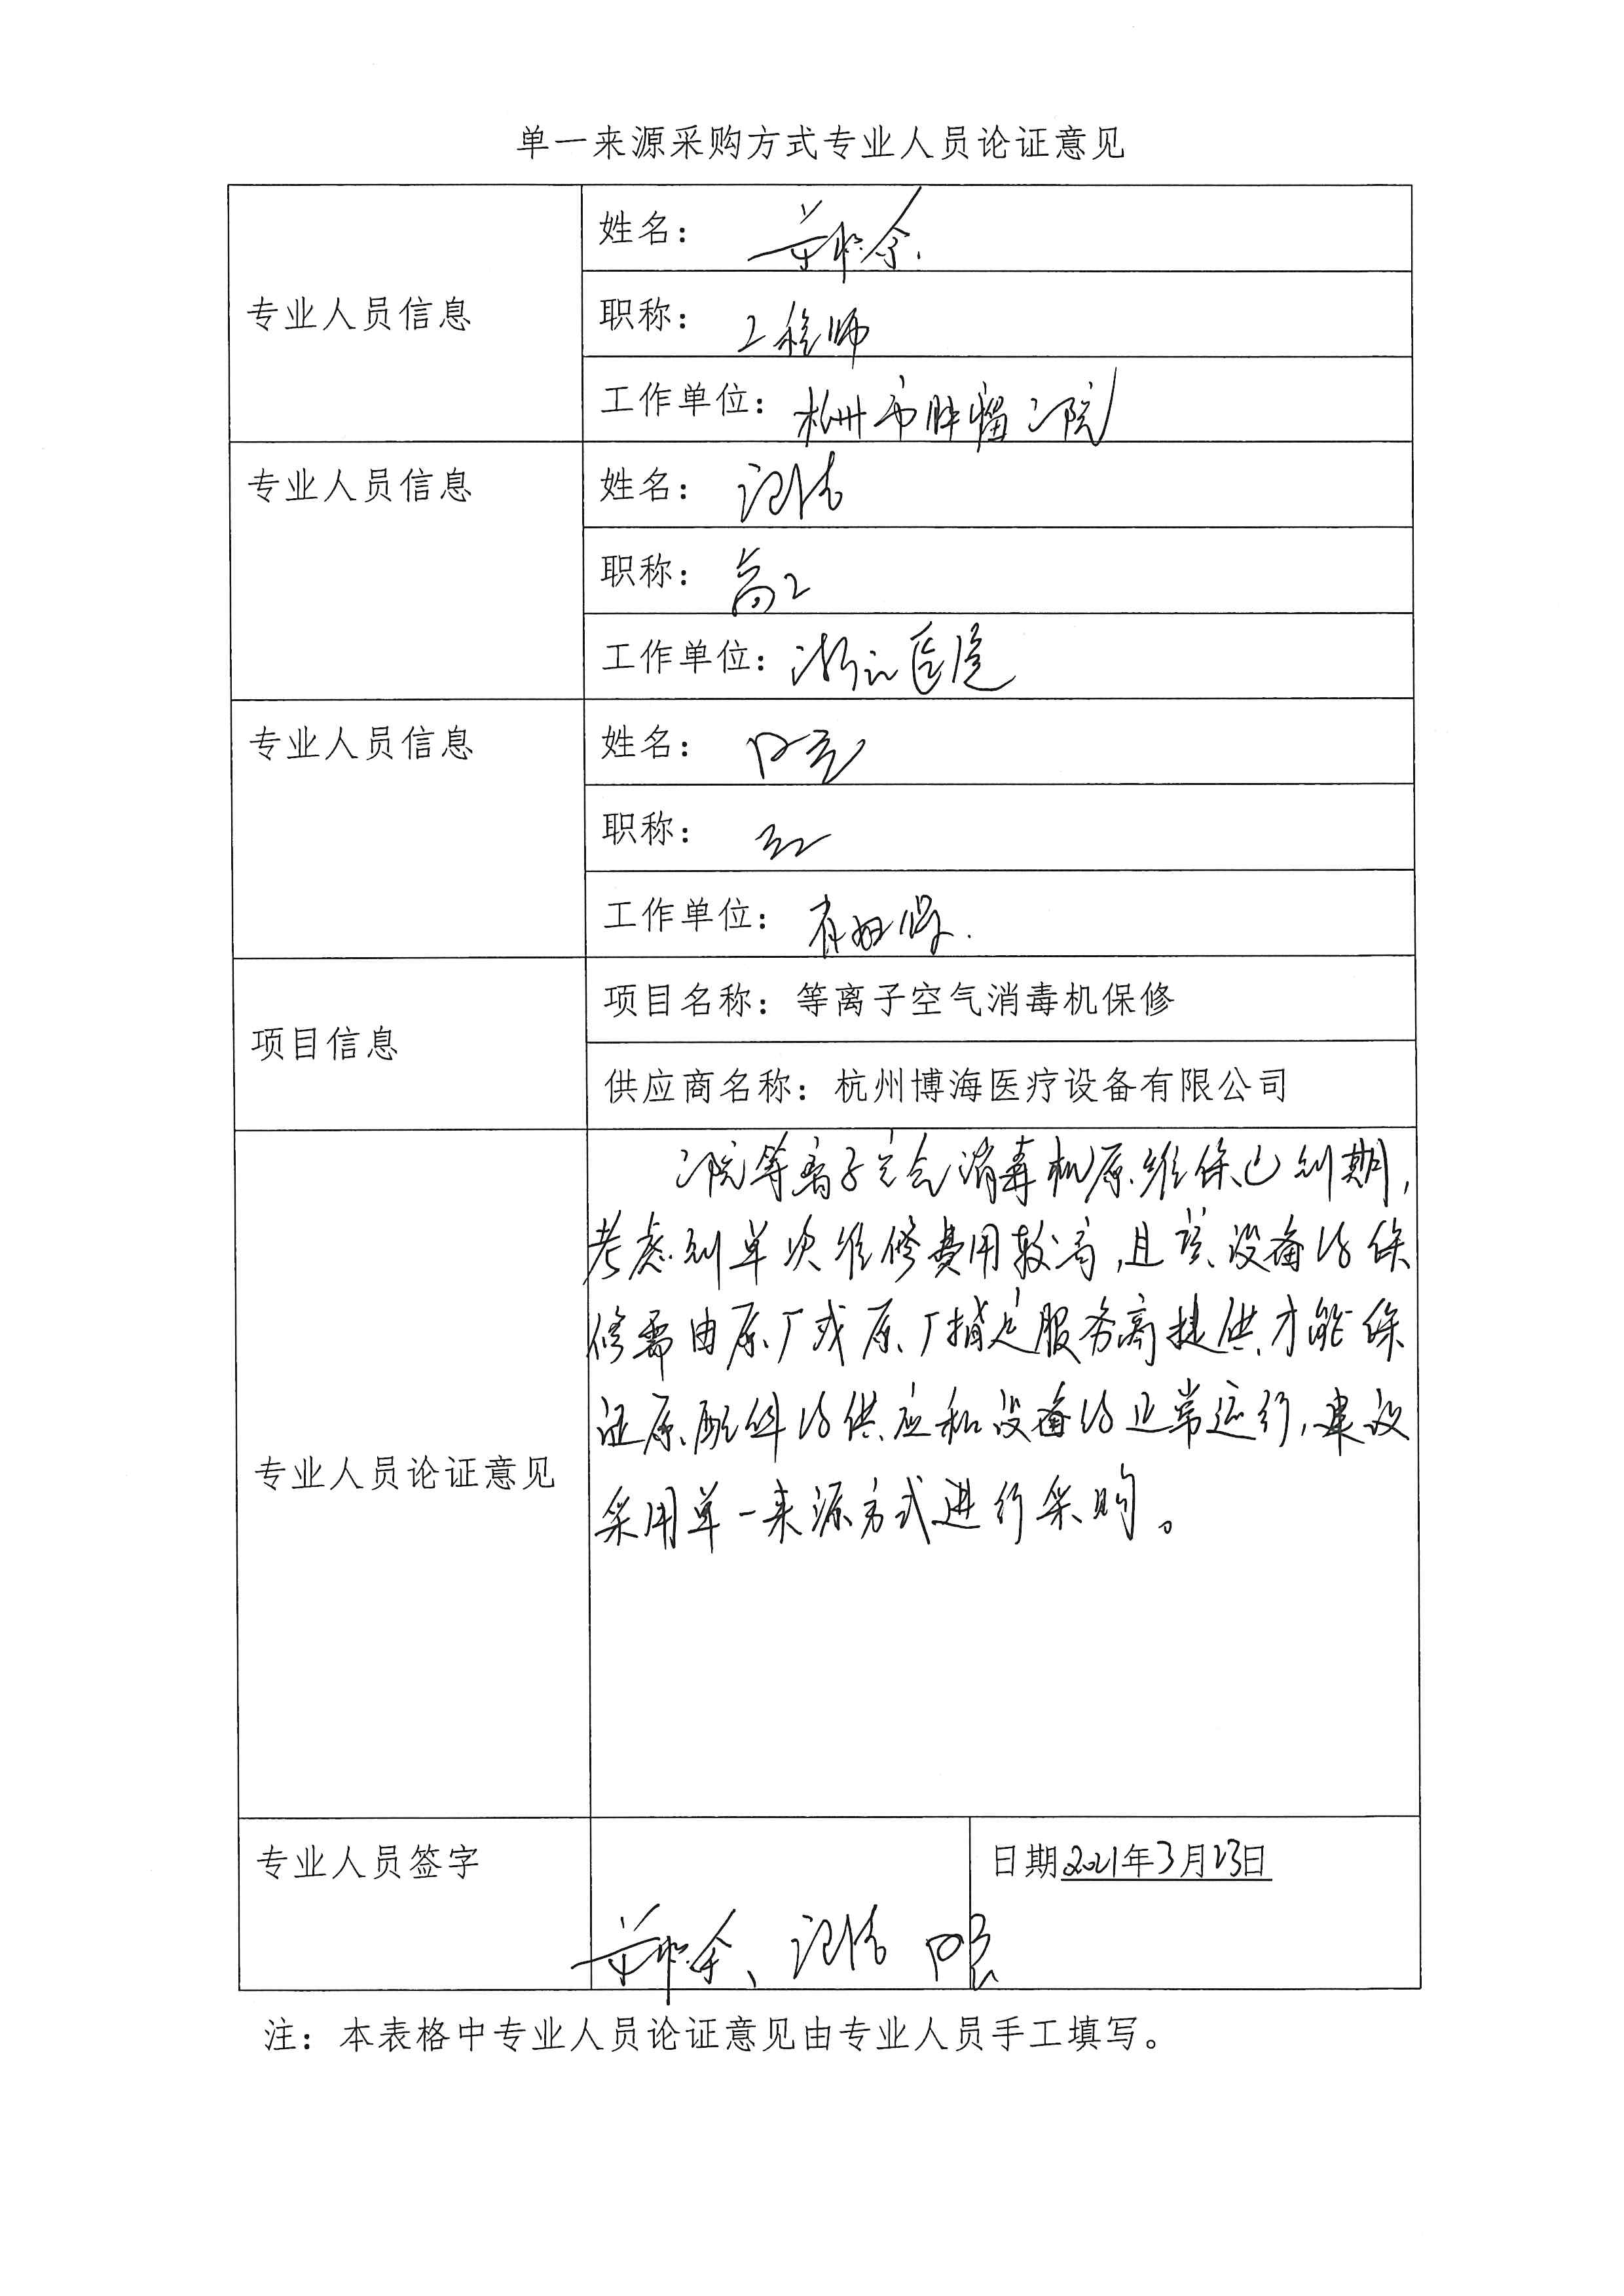 单一来源采购方式专业人员论证意见
专业人员信息
姓名：
职称：工程师
工作单位：杭州市肿瘤医院
专业人员信息
姓名：
职称：高工
工作单位：浙江医院
专业人员信息
姓名：
职称：高工
工作单位：省妇保
项目信息
项目名称：等离子空气消毒机保修
供应商名称：杭州博海医疗设备有限公司
专业人员论证意见
医院等离子空气消毒机原维保已到期，
考虑到单次维修费用较高，且该设备的保
修需由原厂或原厂指定服务商提供才能保
证原配件的供应和设备的正常运行，建议
采用单一来源方式进行采购。
专业人员签字
日期2021年3月23日
注：本表格中专业人员论证意见由专业人员手工填写。